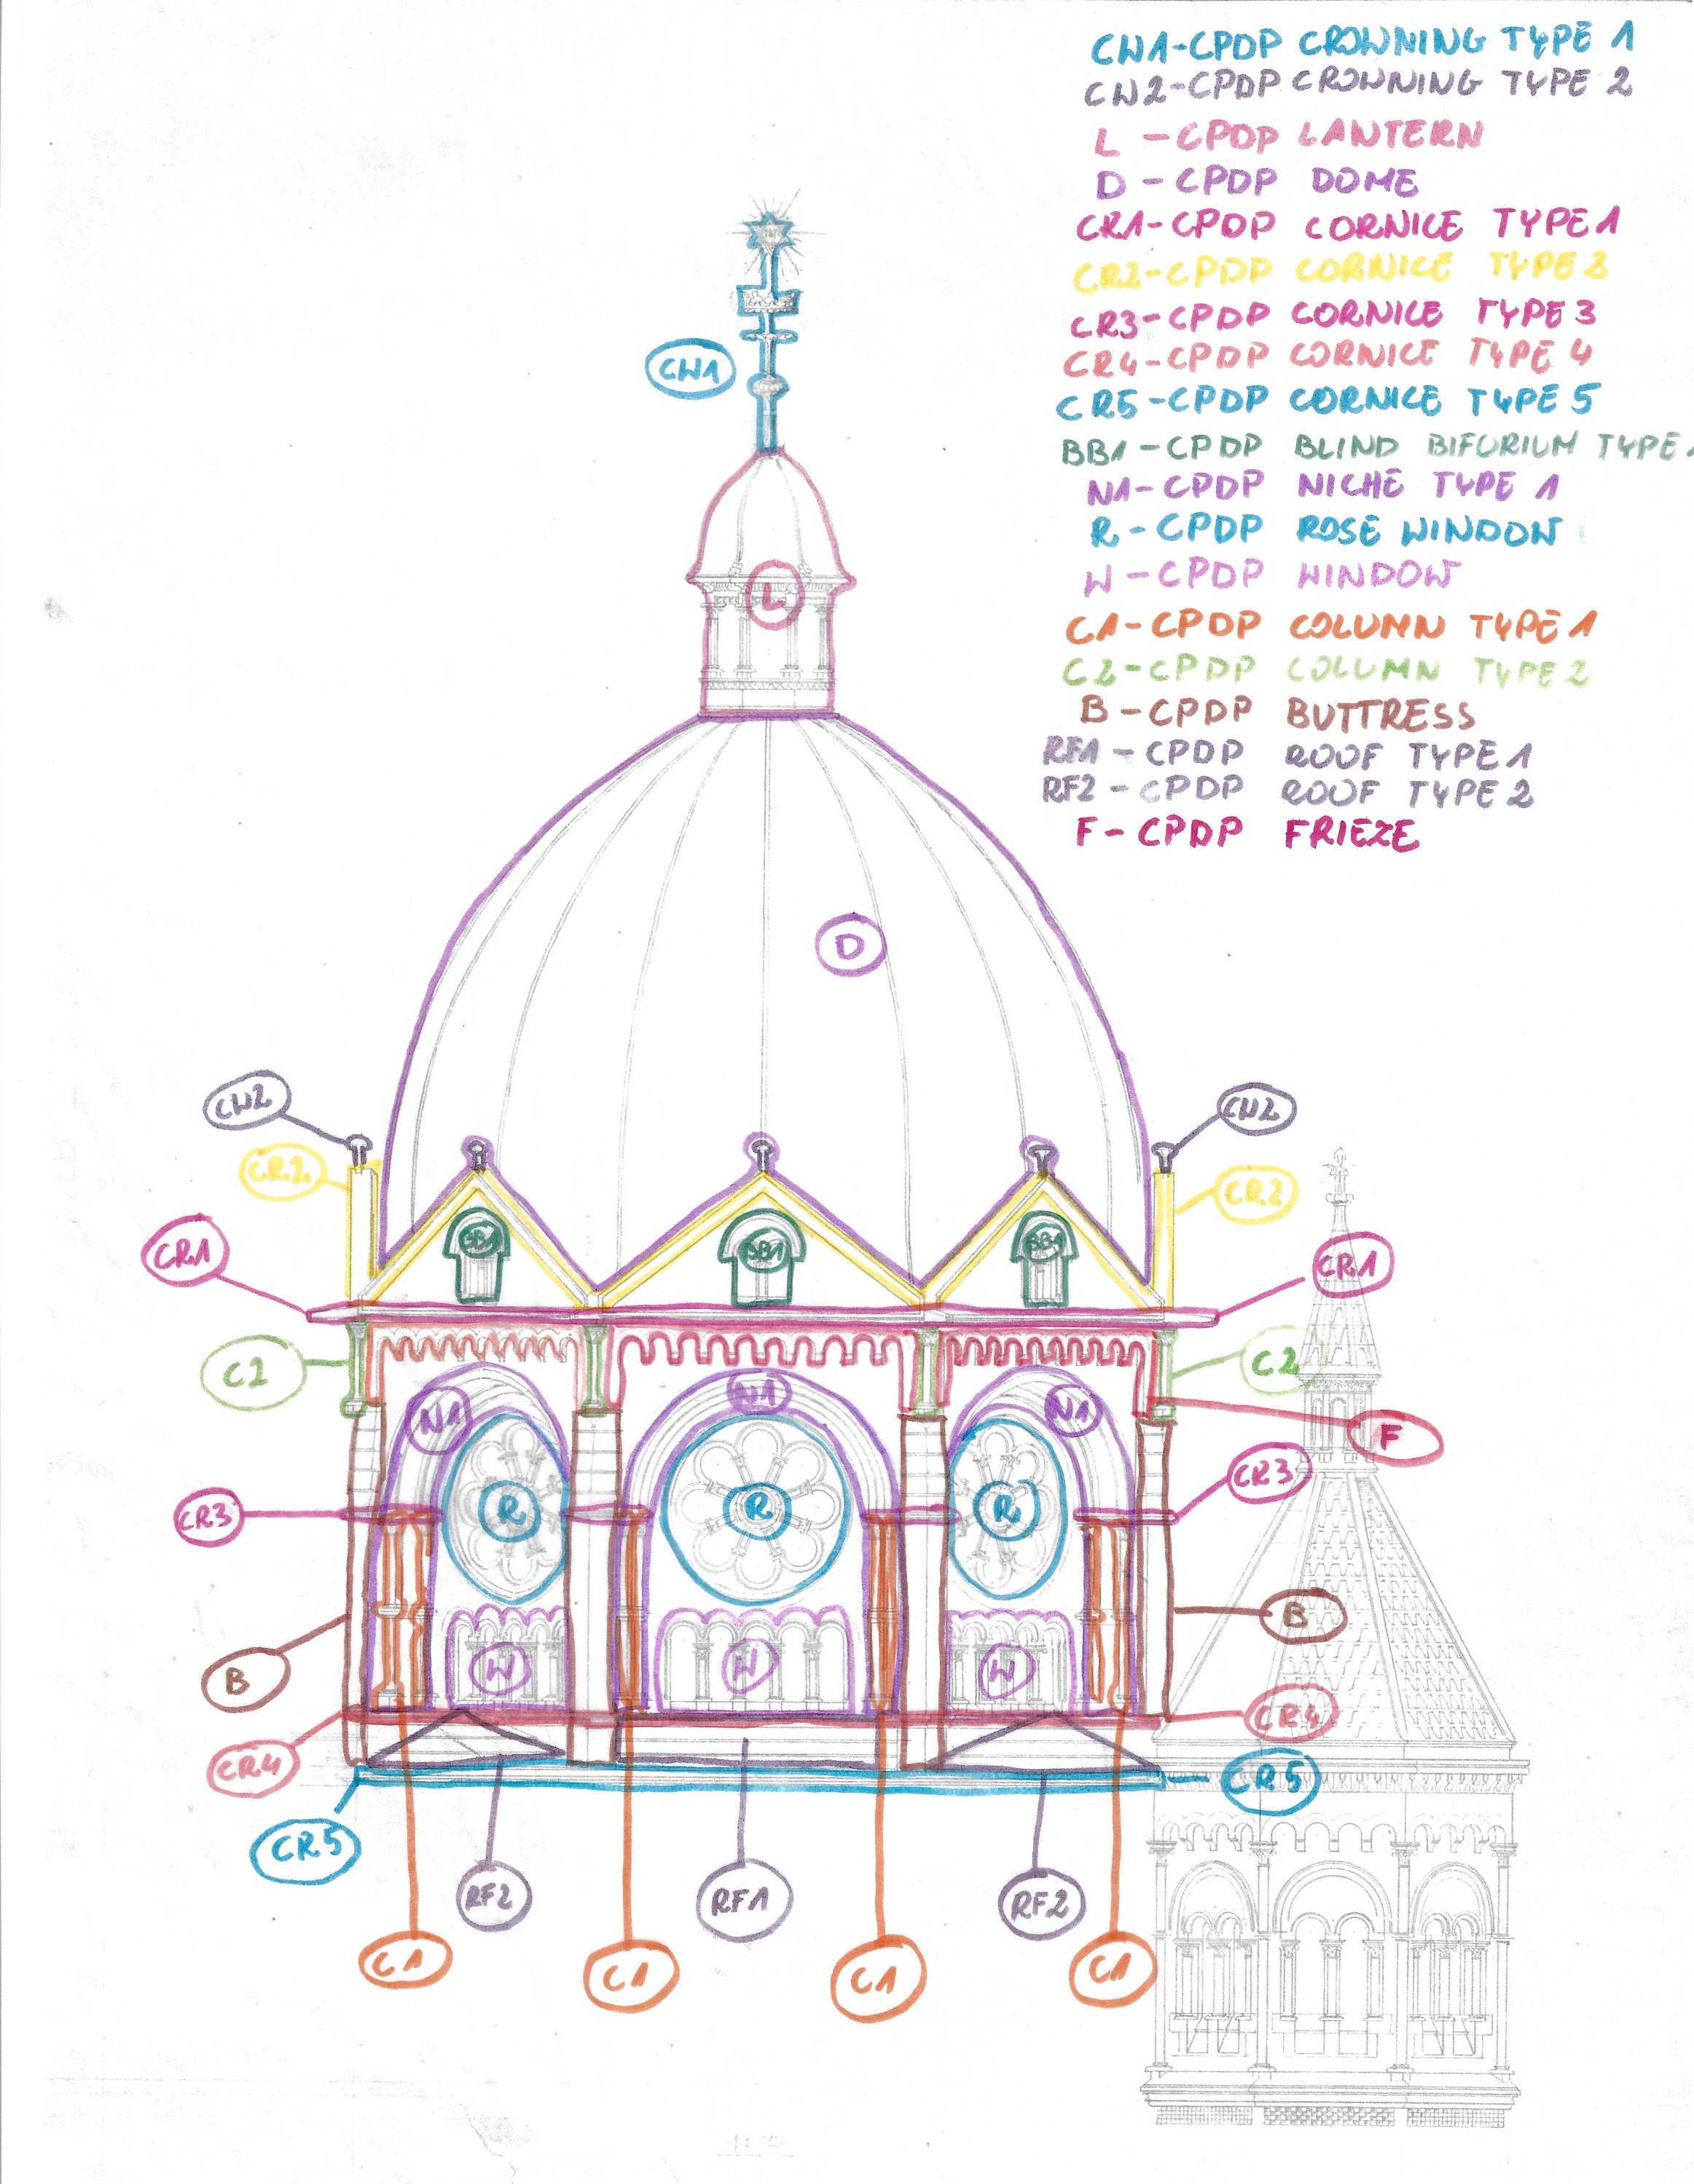 CW1-CPDP CROWNING TYPE 1
CW2-CPDP CROWNING TYPE 2
L - CPDP LANTERN
D - CPDP DOME
CR1-CPDP CORNICE TYPE 1
CR2-CPDP CORNICE TYPE 2
CR3-CPDP CORNICE TYPE 3
CR4-CPDP CORNICE TYPE 4
CR5-CPDP CORNICE TYPE 5
BB1-CPDP BLIND BIFORIUM TYPE 1
N1-CPDP NICHE TYPE 1
R - CPDP ROSE WINDOW
W - CPDP WINDOW
C1-CPDP COLUMN TYPE 1
C2-CPDP COLUMN TYPE 2
B - CPDP BUTTRESS
RF1 - CPDP ROOF TYPE 1
RF2 - CPDP ROOF TYPE 2
F - CPDP FRIEZE
CW1
L
D
CW2 CW2
CR2 CR2
CR1 BB1 BB1 BB1 CR1
C2 C2
N1 N1 N1 F
CR3 R R R CR3
B B
W W W
CR4 CR4
CR5 CR5
RF2 RF1 RF2
C1 C1 C1 C1